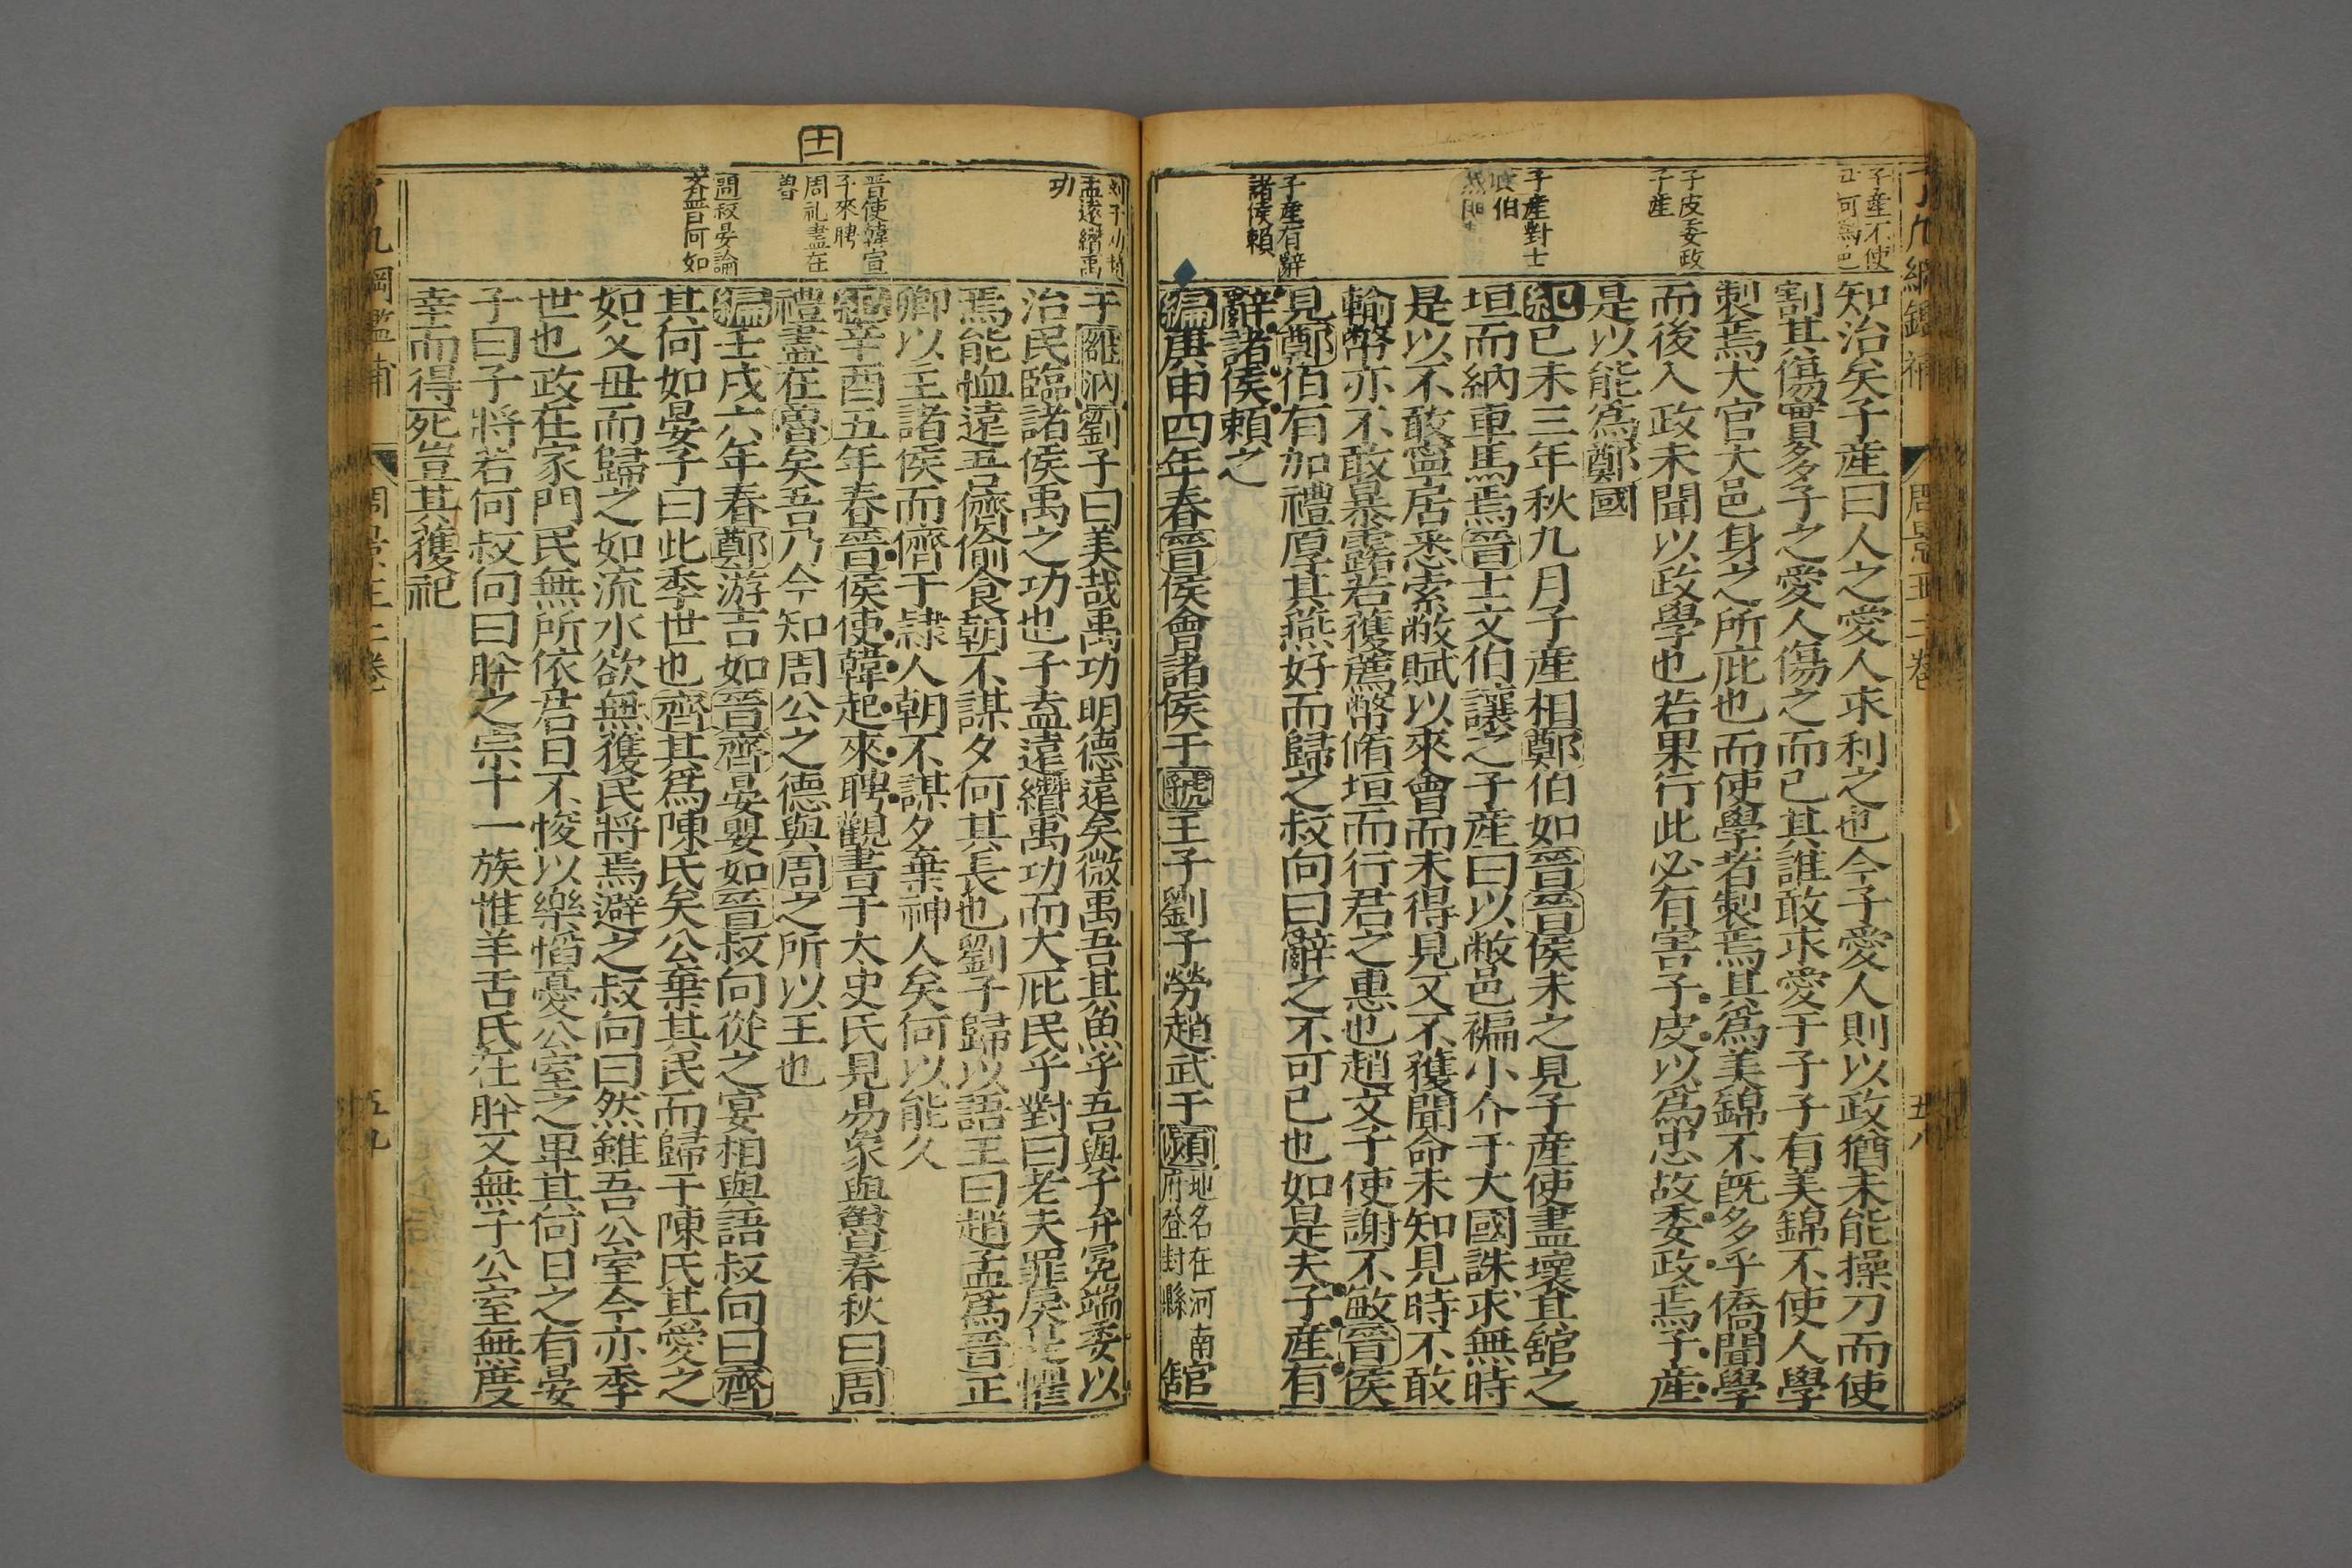 了凡綱鑑補
周景王
二卷
五八
子產不使
何爲邑
子皮委政
子產
子產對士
文伯
子產有辭
諸侯賴
知治矣子產曰人之愛人求利之也今子愛人則以政猶未能操刀而使
割其傷實多子之愛人傷之而已其誰敢求愛于子子有美錦不使人學
製焉大官大邑身之所庇也而使學者製焉其爲美錦不旣多乎僑聞學
而後入政未聞以政學也若果行此必有害子皮以爲忠故委政焉子產
是以能爲鄭國
紀已未三年秋九月子產相鄭伯如晉晉侯未之見子產使盡壞其舘之
垣而納車馬焉晉士文伯讓之子產曰以敝邑褊小介于大國誅求無時
是以不敢寧居悉索敝賦以來會而未得見又不獲聞命未知見時不敢
輸幣亦不敢暴露若獲薦幣脩垣而行君之惠也趙文子使謝不敏晉侯
見鄭伯有加禮厚其燕好而歸之叔向曰辭之不可已也如是夫子產有
辭諸侯賴之
編庚申四年春晉侯會諸侯于虢王子劉子勞趙武于潁地名在河南府登封縣舘
劉子功
孟遠纘禹
功
晉使韓宣
子來聘
周礼盡在
魯
問叔晏論
齊晉何如
于雒汭劉子曰美哉禹功明德遠矣微禹吾其魚乎吾與子弁冕端委以
治民臨諸侯禹之功也子盍遠纘禹功而大庇民乎對曰老夫罪戾是懼
焉能恤遠吾儕偷食朝不謀夕何其長也劉子歸以語王曰趙孟爲晉正
卿以主諸侯而儕于隷人朝不謀夕棄神人矣何以能久
紀辛酉五年春晉侯使韓起來聘觀書于太史氏見易象與魯春秋曰周
禮盡在魯矣吾乃今知周公之德與周之所以王也
編壬戌六年春鄭游吉如晉齊晏嬰如晉叔向從之宴相與語叔向曰齊
其何如晏子曰此季世也齊其爲陳氏矣公棄其民而歸于陳氏其愛之
如父毋而歸之如流水欲無獲民將焉避之叔向曰然雖吾公室今亦季
世也政在家門民無所依君日不悛以樂慆憂公室之卑其何日之有晏
子曰子將若何叔向曰肸之宗十一族惟羊舌氏在肸又無子公室無度
幸而得死豈其獲祀
了凡綱鑑補
周景王
二卷
五九